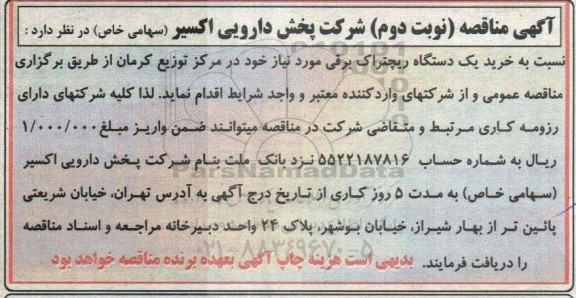 آگهی مناقصه (نوبت دوم) شرکت پخش دارویی اکسیر (سهامی خاص) در نظر دارد :
نسبت به خرید یک دستگاه ریچتراک برقی مورد نیاز خود در مرکز توزیع کرمان از طریق برگزاری
مناقصه عمومی و از شرکتهای واردکننده معتبر و واجد شرایط اقدام نماید. لذا کلیه شرکتهای دارای
رزومه کاری مرتبط و متقاضی شرکت در مناقصه میتوانند ضمن واریز مبلغ ۱/۰۰۰/۰۰۰
ریال به شماره حساب ۵۵۲۲۱۸۷۸۱۶ نزد بانک ملت بنام شرکت پخش دارویی اکسیر
ParsNamadData
(سهامی خاص) به مدت ۵ روز کاری از تاریخ درج آگهی به آدرس تهران، خیابان شریعتی
پائین تر از بهار شیراز، خیابان بوشهر، پلاک ۲۴ واحد دبیرخانه مراجعه و اسناد مناقصه
۰۲۱-۸۸۳۴۹۶۷۰-۵
را دریافت فرمایند. بدیهی است هزینه چاپ آگهی بعهده برنده مناقصه خواهد بود